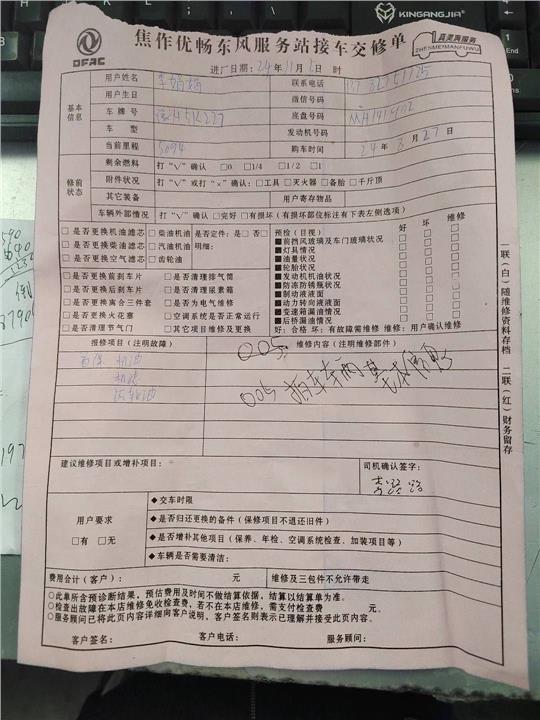 KINGANGJIA
DFAC
焦作优畅东风服务站接车交修单
真迷满服务
ZHENMEIMANFUWU
进厂日期：24年11月2日 时
基本信息
用户姓名
联系电话
用户生日
微信号码
车牌号
底盘号码
车型
发动机号码
当前里程 5094
购车时间 24年8月27日
修前状态
剩余燃料 打“√”确认 □0 □1/4 □1/2 □1
附件状况 打“√”或打“×”确认：□工具 □灭火器 □备胎 □千斤顶
其它装备 用户寄存物品
车辆外部情况 打“√”确认 □完好 □有损坏（有损坏部位标注有下表左侧选项）
□是否更换机油滤芯 □柴油机油 是否定件：是□ 否□
□是否更换柴油滤芯 □汽油机油 明细：
□是否更换空气滤芯 □齿轮油
□是否更换前刹车片 □是否清理排气筒
□是否更换后刹车片 □是否清理尿素箱
□是否更换离合三件套 □是否为电气维修
□是否更换火花塞 □空调系统是否正常运行
□是否清理节气门 □其它项目维修及更换
预检（目视） 好 坏 维修
■前挡风玻璃及车门玻璃状况
■灯具情况
■油量状况
■轮胎状况
■发动机机油状况
■防冻防锈瓶状况
■制动液液面
■动力转向液液面
■变速箱漏油情况
■后桥漏油情况
好：合格 坏：有故障需维修 维修：用户确认维修
报修项目（注明故障）
维修内容（注明维修部件）
首保 机油
机滤
齿轮油
005
005
建议维修项目或增补项目：
司机确认签字：
用户要求
□有 □无
◆交车时限
◆是否归还更换的备件（保修项目不退还旧件）
◆是否增补其他项目（保养、年检、空调系统检查、加装项目等）
◆车辆是否需要清洁：
费用合计（客户）： 元
维修及三包件不允许带走
○此单所含预诊断结果，预估费用及时间不做结算依据，结算以结算单为准。
○检查出故障在本店维修免收检查费，若不在本店维修，需支付检查费 元。
○服务顾问已将此页内容详细向客户说明，客户签名则表示已理解并接受此页内容。
客户签名： 客户电话： 服务顾问：
一联（白）随维修资料存档 二联（红）财务留存